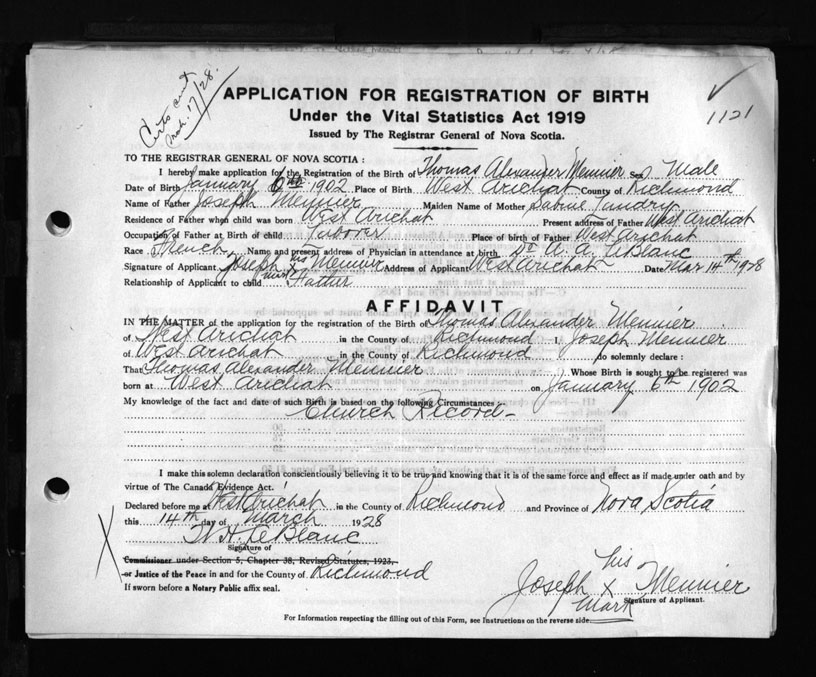 Certs sent
Mch. 17/28.
APPLICATION FOR REGISTRATION OF BIRTH
1121
Under the Vital Statistics Act 1919
Issued by The Registrar General of Nova Scotia.
TO THE REGISTRAR GENERAL OF NOVA SCOTIA :
I hereby make application for the Registration of the Birth of Thomas Alexander Mennier Sex Male
Date of Birth January 6th 1902 Place of Birth West Arichat County of Richmond
Name of Father Joseph Mennier Maiden Name of Mother Sabine Landry
Residence of Father when child was born West Arichat Present address of Father West Arichat
Occupation of Father at Birth of child Laborer Place of birth of Father West Arichat
Race French Name and present address of Physician in attendance at birth Dr W. A. LeBlanc
Signature of Applicant Joseph his X mark Mennier Address of Applicant West Arichat Date Mar 14th 1928
Relationship of Applicant to child Father
AFFIDAVIT
IN THE MATTER of the application for the registration of the Birth of Thomas Alexander Mennier
of West Arichat in the County of Richmond I, Joseph Mennier
of West Arichat in the County of Richmond do solemnly declare :
That Thomas Alexander Mennier Whose Birth is sought to be registered was
born at West Arichat on January 6th 1902
My knowledge of the fact and date of such Birth is based on the following Circumstances
Church Record -
I make this solemn declaration conscientiously believing it to be true and knowing that it is of the same force and effect as if made under oath and by
virtue of The Canada Evidence Act.
Declared before me at West Arichat in the County of Richmond and Province of Nova Scotia
this 14th day of March 1928
W. H. LeBlanc
Signature of
Commissioner under Section 5, Chapter 38, Revised Statutes, 1923,
X or Justice of the Peace in and for the County of Richmond
If sworn before a Notary Public affix seal.
his
Joseph X Mennier
mark
Signature of Applicant.
For Information respecting the filling out of this Form, see Instructions on the reverse side